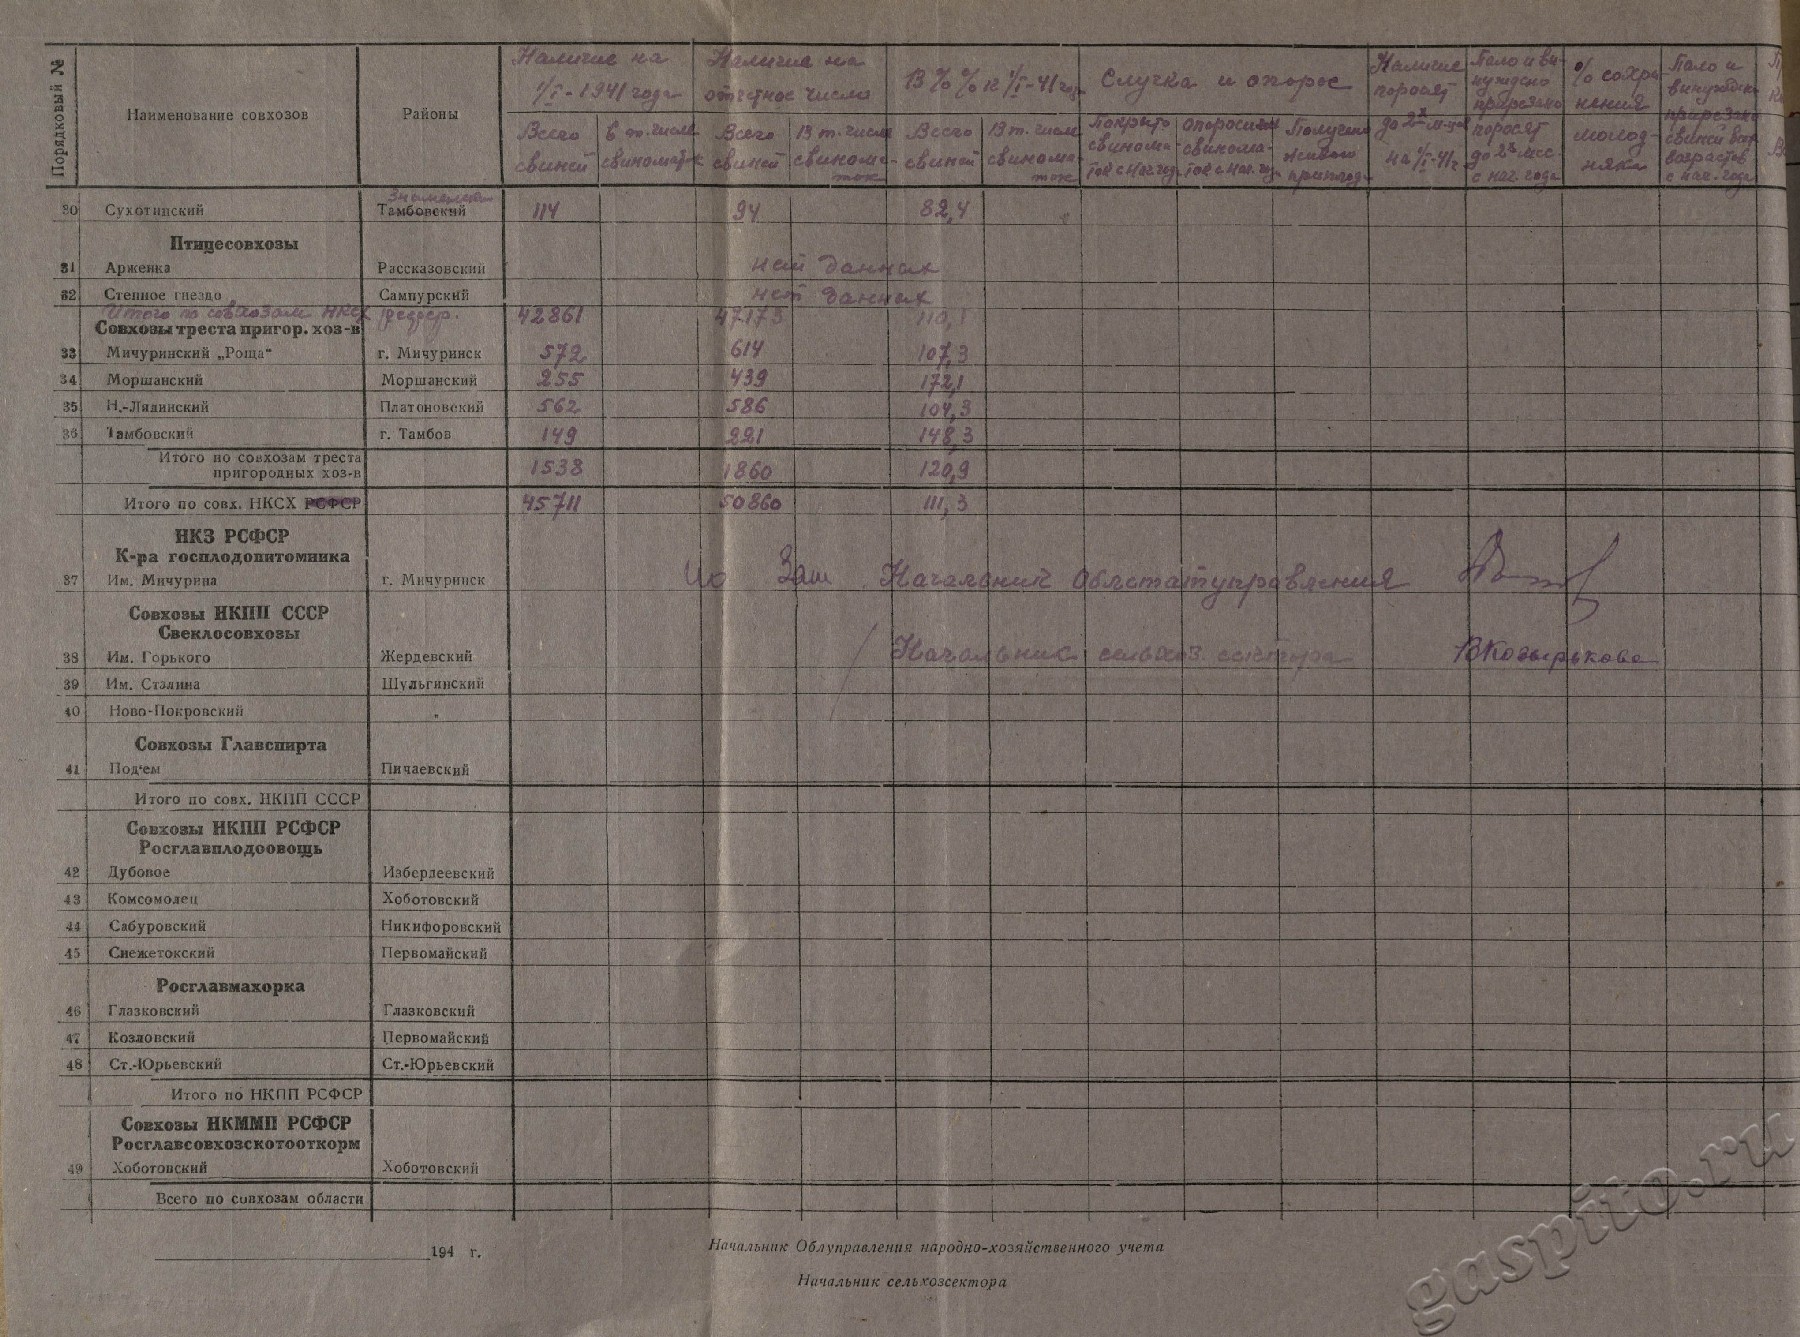 Порядковый №
Наименование совхозов
Районы
Наличие на
1/I-1941 года
Всего
свиней
в т. числе
свиноматок
Наличие на
отчетное число
Всего
свиней
В т. числе
свинома-
ток
В % % к 1/I-41 года
Всего
свиней
В т. числе
свинома-
ток
Случка и опорос
Покрыто
свинома-
ток с нач. года
опоросилось
свинома-
ток с нач. года
Получено
живого
приплода
Наличие
поросят
до 2х м-цев
на 1/I-41 г
Пало и вы-
нуждено
прирезано
поросят
до 2х мес.
с нач. года
% сохра-
нения
молод-
няка
Пало и
вынуждено
прирезано
свиней всех
возрастов
с нач. года
30 Сухотинский Знаменский Тамбовский 114 94 82,4
Птицесовхозы
31 Арженка Рассказовский нет данных
32 Степное гнездо Сампурский нет данных
Итого по совхозам НКСХ 42861 47173 110,1
Совхозы треста пригор. хоз-в
33 Мичуринский „Роща" г. Мичуринск 572 614 107,3
34 Моршанский Моршанский 255 439 172,1
35 Н.-Лядинский Платоновский 562 586 104,3
36 Тамбовский г. Тамбов 149 221 148,3
Итого по совхозам треста
пригородных хоз-в 1538 1860 120,9
Итого по совх. НКСХ РСФСР 45711 50860 111,3
НКЗ РСФСР
К-ра госплодопитомника
37 Им. Мичурина г. Мичуринск
Ио Зам Начальник облстатуправления
Совхозы НКПП СССР
Свеклосовхозы
38 Им. Горького Жердевский
Начальник сельхоз. сектора ВКозырькова
39 Им. Сталина Шульгинский
40 Ново-Покровский "
Совхозы Главспирта
41 Под'ем Пичаевский
Итого по совх. НКПП СССР
Совхозы НКПП РСФСР
Росглавплодоовощь
42 Дубовое Избердеевский
43 Комсомолец Хоботовский
44 Сабуровский Никифоровский
45 Снежетокский Первомайский
Росглавмахорка
46 Глазковский Глазковский
47 Козловский Первомайский
48 Ст.-Юрьевский Ст.-Юрьевский
Итого по НКПП РСФСР
Совхозы НКММП РСФСР
Росглавсовхозскотооткорм
49 Хоботовский Хоботовский
Всего по совхозам области
194 г.
Начальник Облуправления народно-хозяйственного учета
Начальник сельхозсектора
gaspito.ru